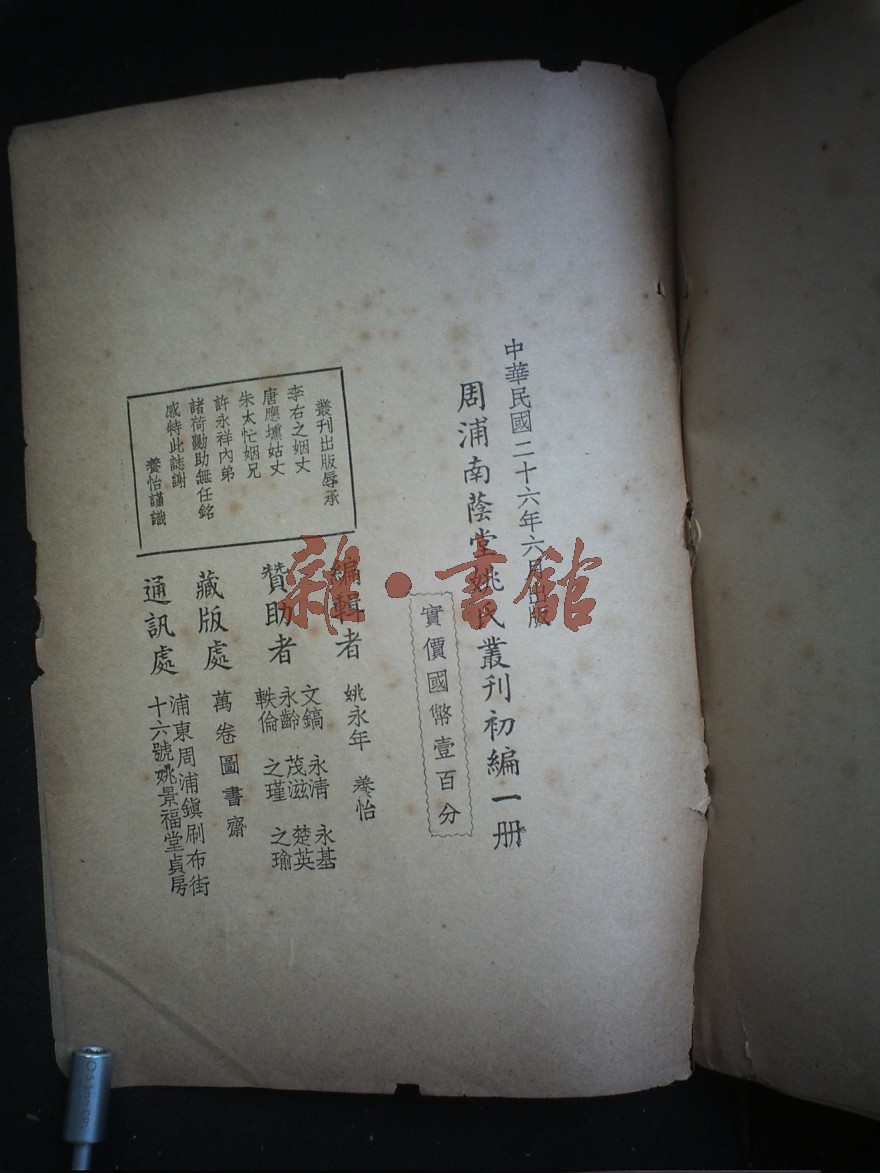 中華民國二十六年六月出版
周浦南蔭堂姚氏叢刊初編一册
實價國幣壹百分
編輯者 姚永年 養怡
贊助者 文鎬 永清 永基
永齡 茂滋 楚英
軼倫 之瑾 之瑜
藏版處 萬卷圖書齋
通訊處 浦東周浦鎮刷布街
十六號姚景福堂貞房
叢刊出版辱承
李右之姻丈
唐應壎姑丈
朱太忙姻兄
許永祥內弟
諸荷勷助無任銘
感特此誌謝
養怡謹識
雜·書館